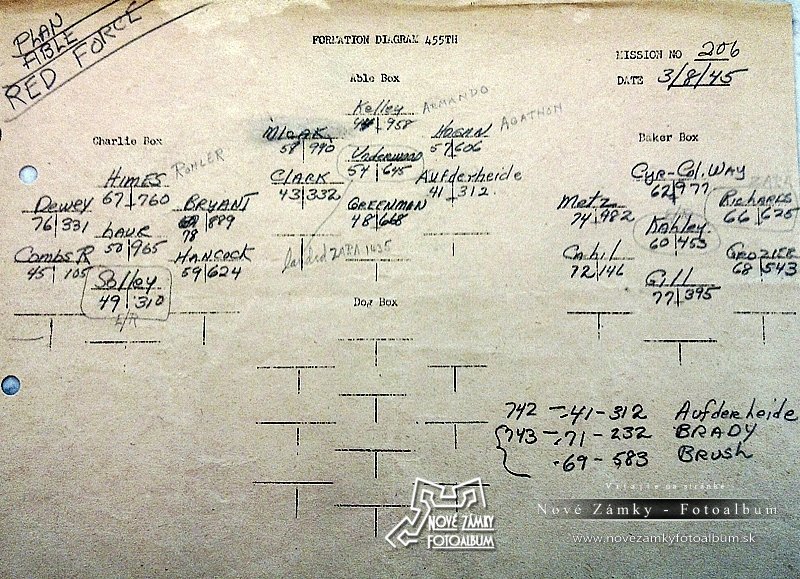 PLAN
ABLE
RED FORCE
FORMATION DIAGRAM 455TH
MISSION NO 206
DATE 3/8/45
Able Box
Kelley ARMANDO
44 958
Mlcak
58 990
HOGAN AGATHON
57 606
Underwood
54 645
CLACK
43 332
Aufderheide
41 312
GREENMAN
48 668
landed ZARA 1435
Charlie Box
HIMES ROHLER
67 760
Dewey
76 331
BRYANT
78 889
LAUR
50 965
Combs R
45 105
HANCOCK
59 624
Solley
49 310
E/R
Baker Box
Gyr-Col. WAY
62 977
Metz
74 982
Richards
66 625
Kahley
60 453
Cahil
72 146
GROZIER
68 543
Gill
77 395
Dog Box
742 - 41 - 312 Aufderheide
743 - 71 - 232 BRADY
69 - 583 BRUSH
Vitajte na stránke
Nové Zámky - Fotoalbum
www.novezamkyfotoalbum.sk
NOVÉ ZÁMKY
FOTOALBUM